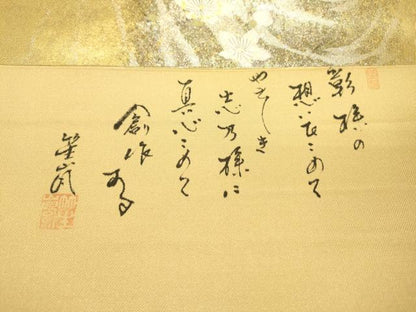 の
想いをこめて
やさしき
志乃様に
真心こめて
創作する